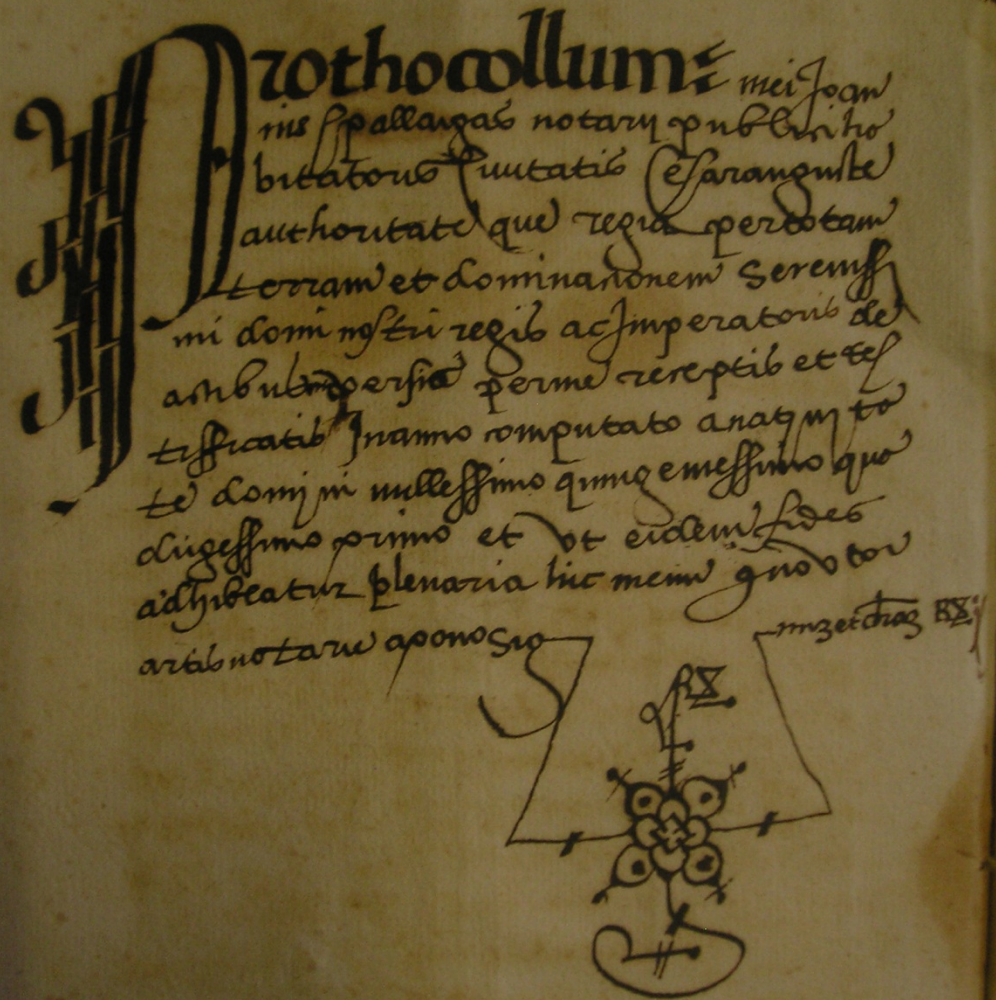 Prothocollum mei Joan
nis Spallargas notarii publici ha
bitatoris Civitatis Cesarauguste
authoritate que regia per totam
terram et dominacionem Serenissi
mi domi nostri regis ac Imperatoris de
actibus per me receptis et tes
tifficatis In anno computato a nati
te domini millessimo quingentessimo qua
dragessimo primo et ut eidem fides
adhibeatur plenaria hic meum
artis notarie apono Sig num